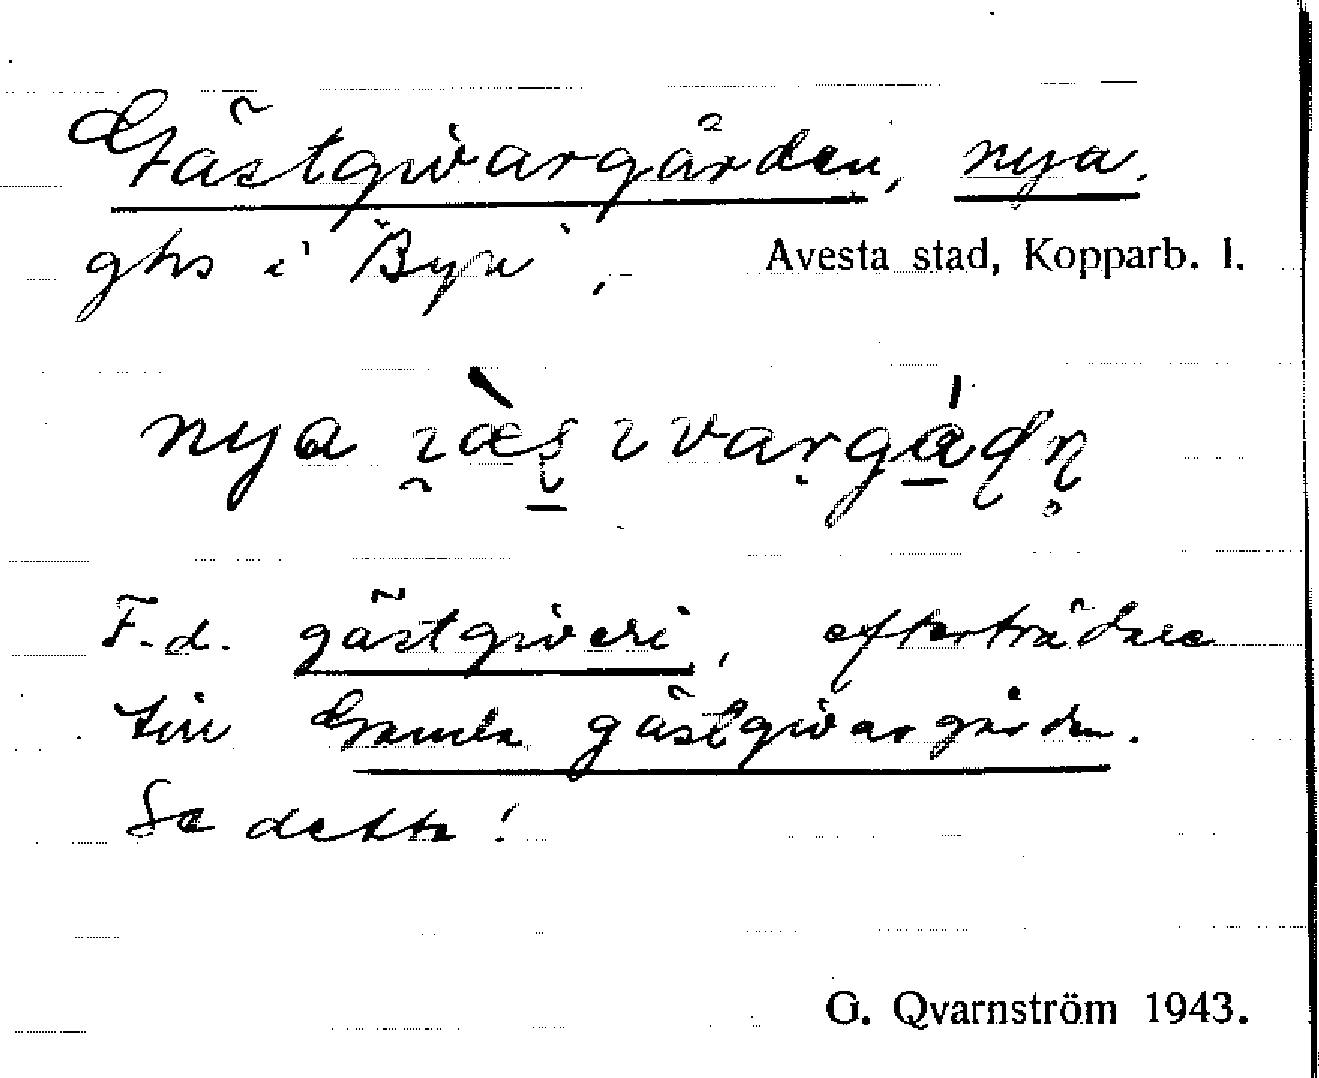 Gästgivargården, nya.
ghs i "Byn", Avesta stad, Kopparb. l.
nya
F.d. gästgiveri, efterträdare
till Gamla gästgivargården.
Se detta!
G. Qvarnström 1943.